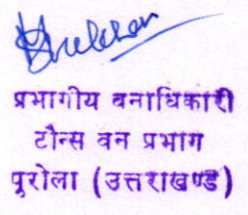 प्रभागीय वनाधिकारी
टौन्स वन प्रभाग
पुरोला (उत्तराखण्ड)